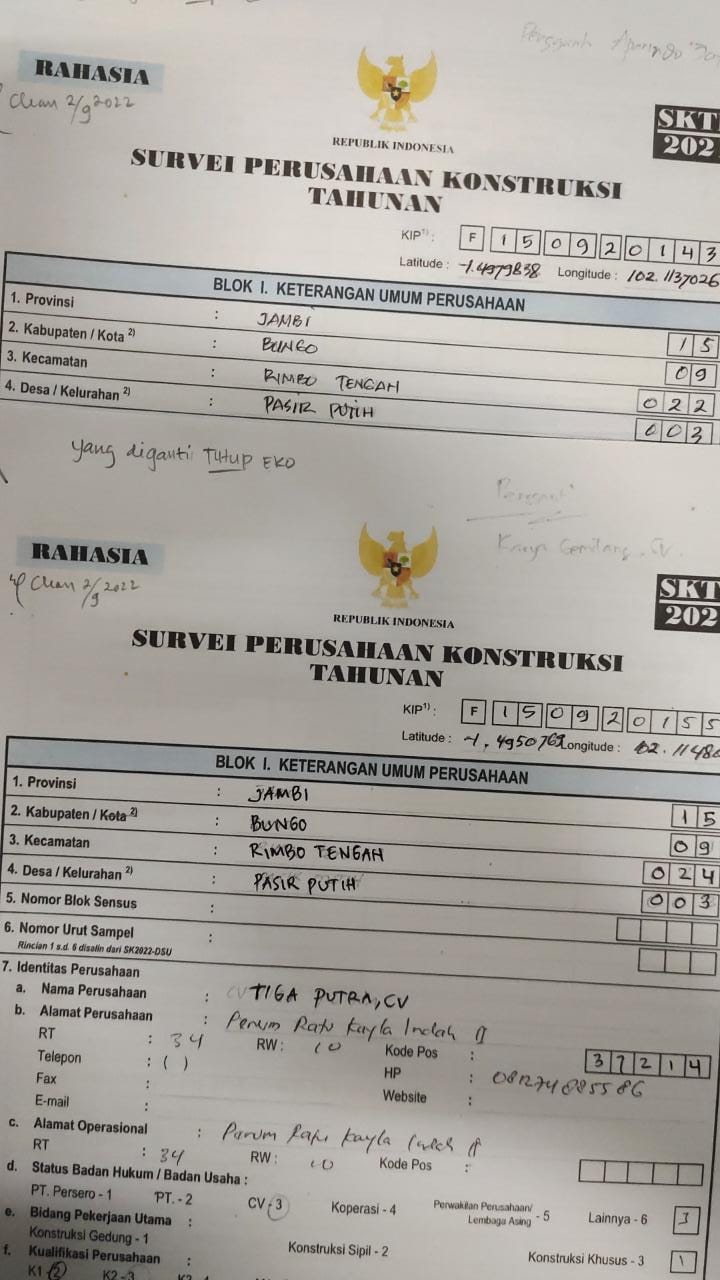 Pengganti
RAHASIA
Clean 2/9 2022
REPUBLIK INDONESIA
SKT
202
SURVEI PERUSAHAAN KONSTRUKSI
TAHUNAN
KIP1) : F 1 5 0 9 2 0 1 4 3
Latitude : -1.4979838 Longitude : 102.1137026
BLOK I. KETERANGAN UMUM PERUSAHAAN
1. Provinsi : JAMBI 15
2. Kabupaten / Kota 2) : BUNGO 09
3. Kecamatan : RIMBO TENGAH 022
4. Desa / Kelurahan 2) : PASIR PUTIH 003
yang diganti: TUTUP EKO
Pengganti
Karya Gemilang, CV.
RAHASIA
Clean 2/9 2022
REPUBLIK INDONESIA
SKT
202
SURVEI PERUSAHAAN KONSTRUKSI
TAHUNAN
KIP1) : F 1 5 0 9 2 0 1 5 5
Latitude : -1.4950769 Longitude : 102.1148
BLOK I. KETERANGAN UMUM PERUSAHAAN
1. Provinsi : JAMBI 15
2. Kabupaten / Kota 2) : BUNGO 09
3. Kecamatan : RIMBO TENGAH 024
4. Desa / Kelurahan 2) : PASIR PUTIH 003
5. Nomor Blok Sensus :
6. Nomor Urut Sampel :
Rincian 1 s.d. 6 disalin dari SK2022-DSU
7. Identitas Perusahaan
a. Nama Perusahaan : CV TIGA PUTRA, CV
b. Alamat Perusahaan : Perum Ratu Kayla Indah II
RT : 34 RW : 10 Kode Pos : 37214
Telepon : ( ) HP : 081274885586
Fax : Website :
E-mail :
c. Alamat Operasional : Perum Ratu Kayla Indah II
RT : 34 RW : 10 Kode Pos :
d. Status Badan Hukum / Badan Usaha :
PT. Persero - 1 PT. - 2 CV - 3 Koperasi - 4 Perwakilan Perusahaan/ Lembaga Asing - 5 Lainnya - 6 3
e. Bidang Pekerjaan Utama :
Konstruksi Gedung - 1 Konstruksi Sipil - 2 Konstruksi Khusus - 3 1
f. Kualifikasi Perusahaan :
K1 2 K2 - 3